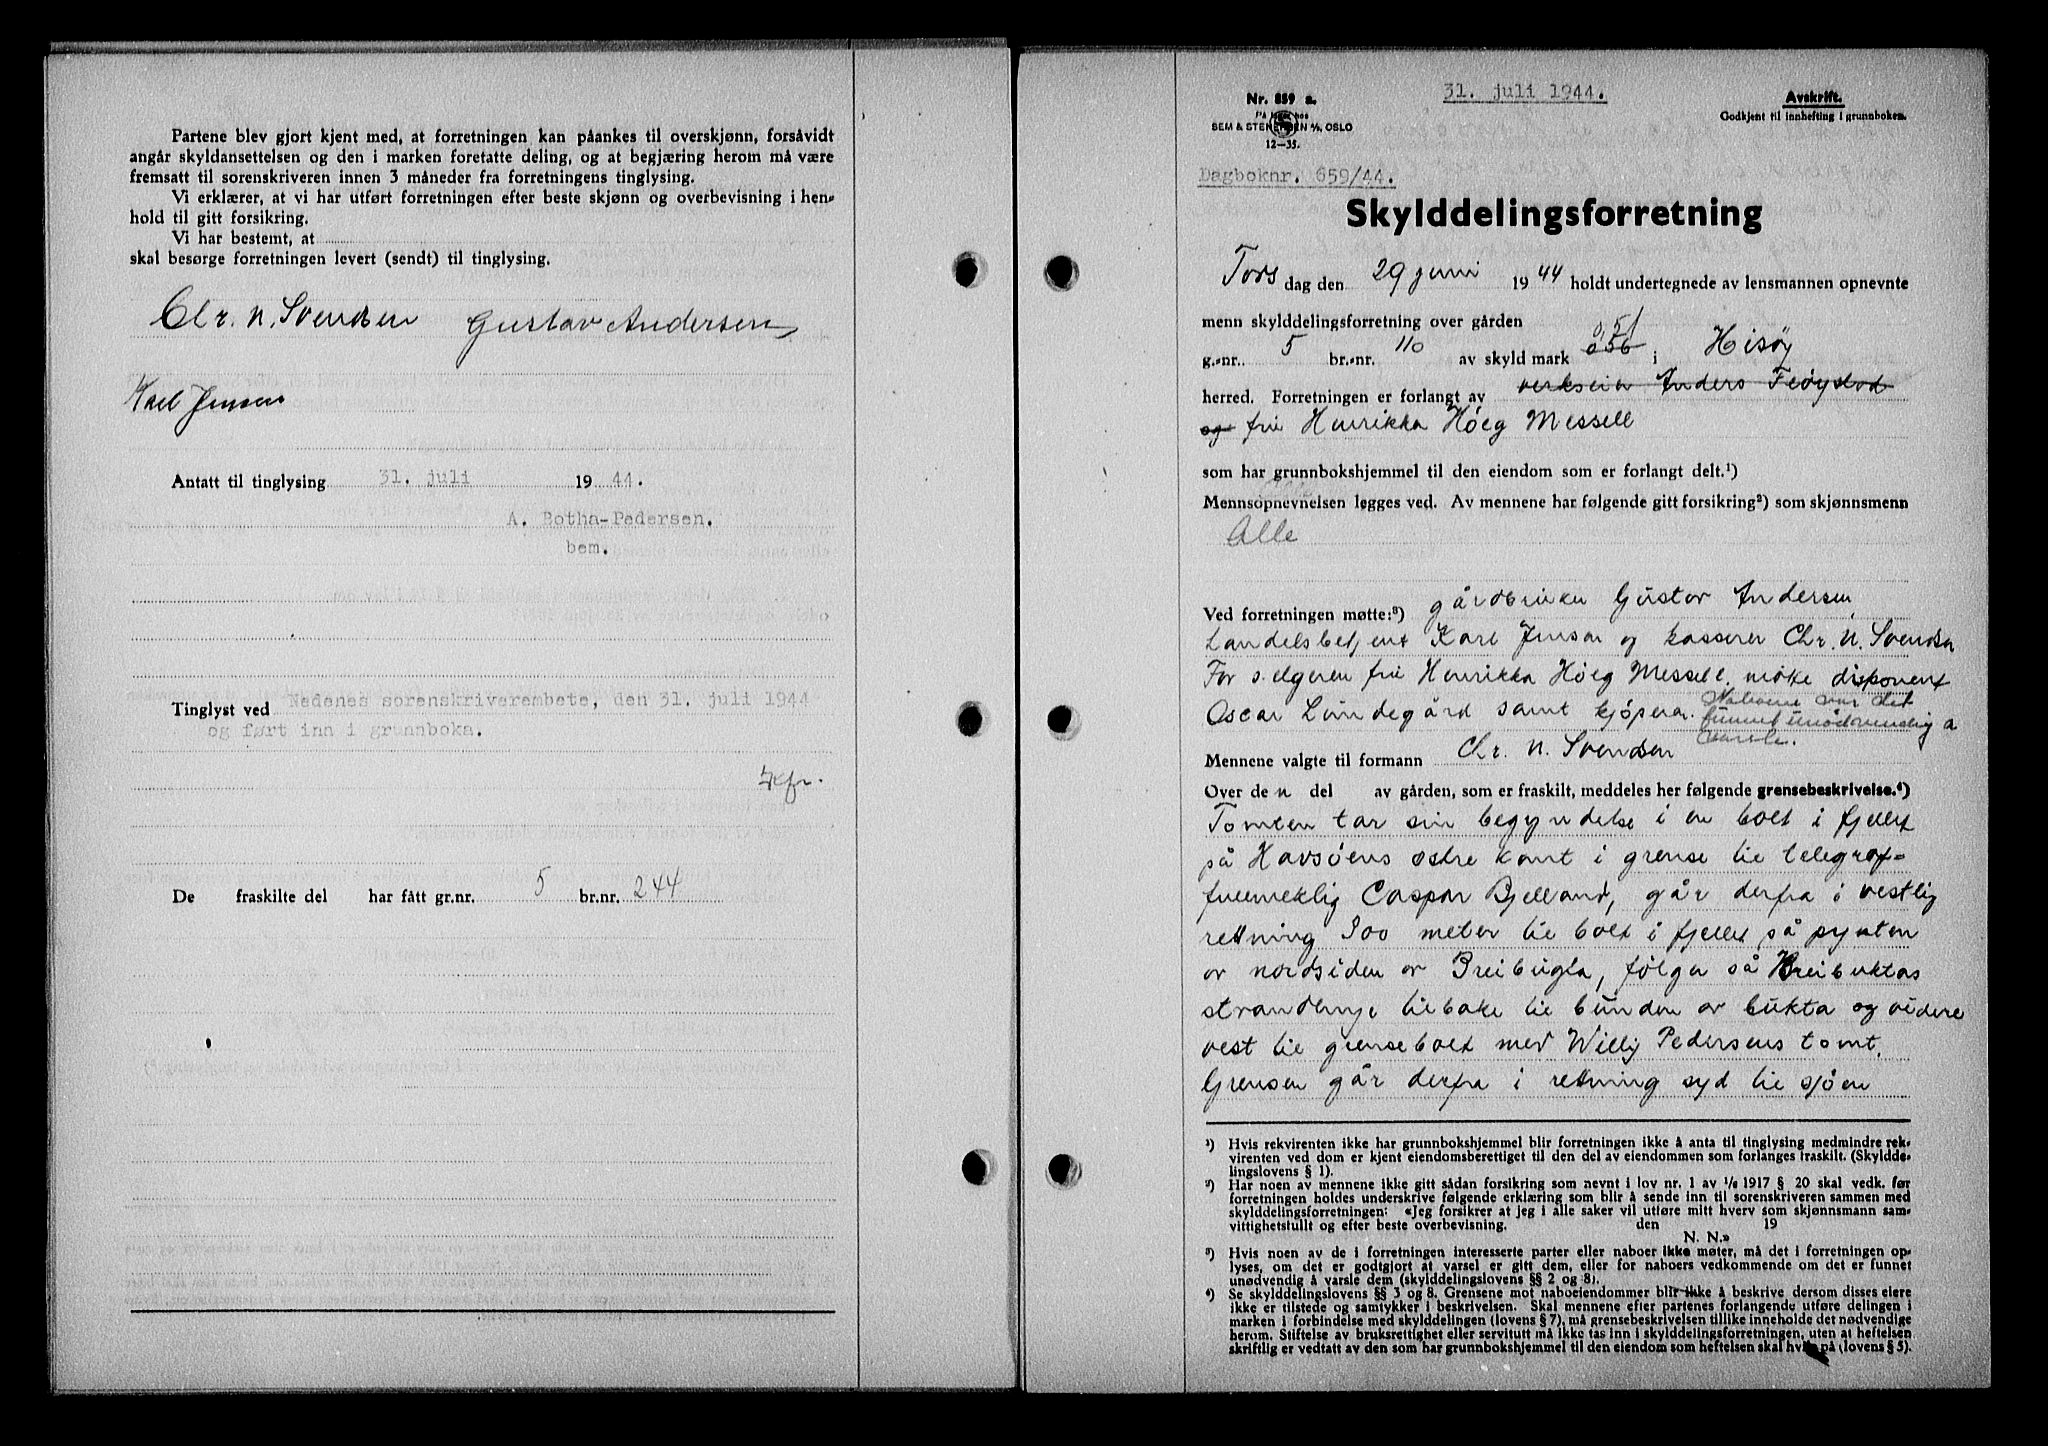 Partene blev gjort kjent med, at forretningen kan påankes til overskjønn, forsåvidt
angår skyldansettelsen og den i marken foretatte deling, og at begjæring herom må være
fremsatt til sorenskriveren innen 3 måneder fra forretningens tinglysing.
Vi erklærer, at vi har utført forretningen efter beste skjønn og overbevisning i hen-
hold til gitt forsikring.
Vi har bestemt, at
skal besørge forretningen levert (sendt) til tinglysing.
Chr. N. Svendsen Gustav Andersen
Karl Jensen
Antatt til tinglysing 31. juli 1944.
A. Botha-Pedersen.
bem.
Tinglyst ved Nedenes sorenskriverembete, den 31. juli 1944
og ført inn i grunnboka.
De fraskilte del har fått gr.nr. 5 br.nr. 244
31. juli 1944.
Nr. 859 a.
På lager hos
SEM & STENERSEN A/S, OSLO
12—35.
Avskrift.
Godkjent til innhefting i grunnboken.
Dagboknr. 659/44.
Skylddelingsforretning
Tors dag den 29 juni 1944 holdt undertegnede av lensmannen opnevnte
menn skylddelingsforretning over gården
g.-nr. 5 br.-nr. 110 av skyld mark 0,51 056 i Hisøy
herred. Forretningen er forlangt av verkseier Anders Fløystad
og fru Henrikka Høeg Messell
som har grunnbokshjemmel til den eiendom som er forlangt delt.¹)
Mennsopnevnelsen legges ved. Av mennene har følgende gitt forsikring²) som skjønnsmenn
Alle
Ved forretningen møtte:³) gårdbruker Gustav Andersen,
Karl Jensen og kasserer Chr. N. Svendsen
For selgeren fru Henrikka Høeg Messell, møtte disponent
Oscar Lundegård samt kjøperen. Naboene var det
funnet unødvendig a
varsle.
Mennene valgte til formann Chr. N. Svendsen
Over den del av gården, som er fraskilt, meddeles her følgende grensebeskrivelse.⁴)
Tomten tar sin begyndelse i en bolt i fjellet
på Havsøens østre kant i grense til telegraf-
Caspar Bjelland, går derfra i vestlig
retning 300 meter til bolt i fjellet på pynten
av nordsiden av Breibugta, følger så Breibuktas
strandlinje tilbake til bunden av bukta og videre
vest til grensebolt med Willy Pedersens tomt.
Grensen går derfra i retning syd til sjøen
¹) Hvis rekvirenten ikke har grunnbokshjemmel blir forretningen ikke å anta til tinglysing medmindre rek-
virenten ved dom er kjent eiendomsberettiget til den del av eiendommen som forlanges fraskilt. (Skyldde-
lingslovens § 1).
²) Har noen av mennene ikke gitt sådan forsikring som nevnt i lov nr. 1 av 1/6 1917 § 20 skal vedk. før
forretningen holdes underskrive følgende erklæring som blir å sende inn til sorenskriveren sammen med
skylddelingsforretningen: «Jeg forsikrer at jeg i alle saker vil utføre mitt hverv som skjønnsmann sam-
vittighetsfullt og efter beste overbevisning. den 19
N. N.»
³) Hvis noen av de i forretningen interesserte parter eller naboer ikke møter, må det i forretningen op-
lyses, om det er godtgjort at varsel er gitt dem, eller for naboers vedkommende om det er funnet
unødvendig å varsle dem (skylddelingslovens §§ 2 og 8).
⁴) Se skylddelingslovens §§ 3 og 8. Grensene mot naboeiendommer blir ikke å beskrive dersom disses eiere
ikke er tilstede og samtykker i beskrivelsen. Skal mennene efter partenes forlangende utføre delingen i
marken i forbindelse med skylddelingen (lovens § 7), må grensebeskrivelsen tillike inneholde det nødvendige
herom. Stiftelse av bruksrettighet eller servitutt må ikke tas inn i skylddelingsforretningen, uten at heftelsen
skriftlig er vedtatt av den som har grunnbokshjemmel til den eiendom som heftelsen skal hvile på (lovens § 5).